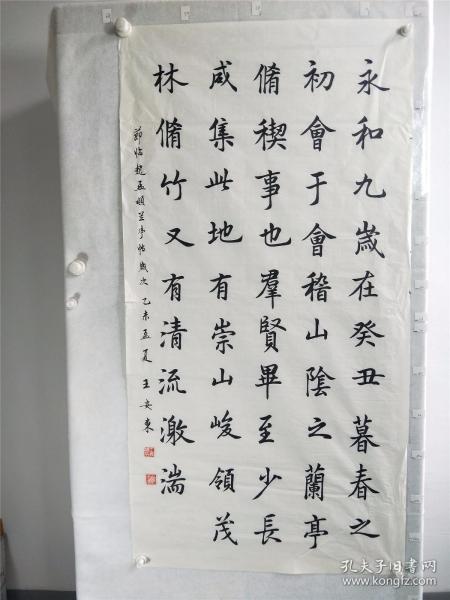 永和九歲在癸丑暮春之
初會于會稽山陰之蘭亭
脩稧事也羣賢畢至少長
咸集此地有崇山峻領茂
林脩竹又有清流激湍
節臨趙孟頫兰亭帖歲次乙未孟夏王安東
孔夫子旧书网
www.kongfz.com